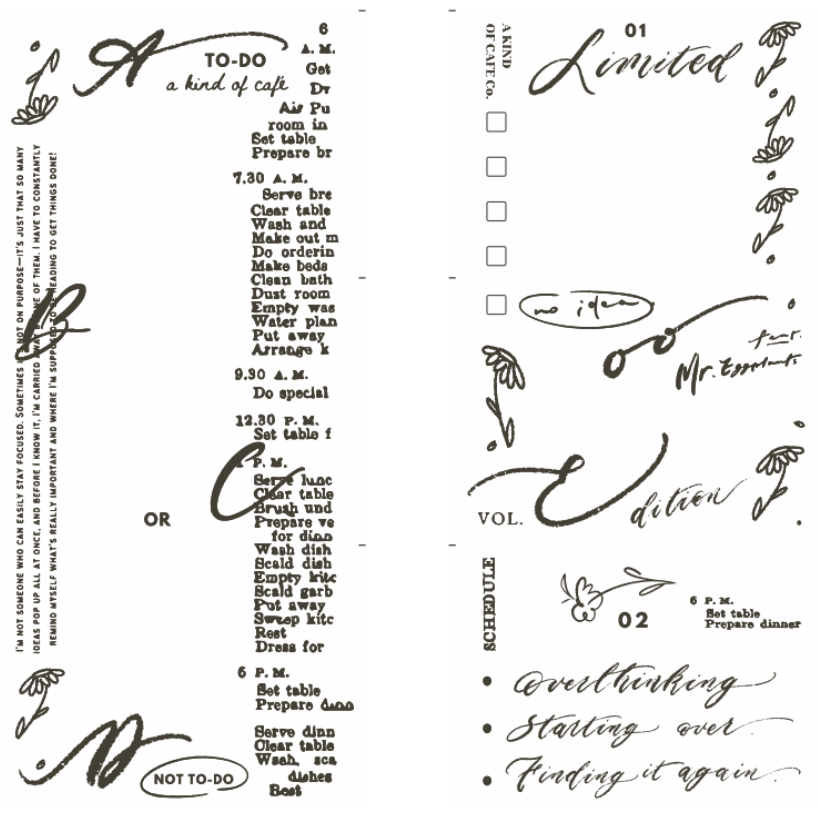 A
6
TO-DO
a kind of café
A. M.
Get
Dr
Air Pu
room in
Set table
Prepare br
7.30 A. M.
Serve bre
Clear table
Wash and
Make out m
Do orderin
Make beds
Clean bath
Dust room
Empty was
Water plan
Put away
Arrange k
9.30 A. M.
Do special
12.30 P. M.
Set table f
P. M.
Serve lunc
Clear table
Brush und
Prepare ve
for dinn
Wash dish
Scald dish
Empty kitc
Scald garb
Put away
Sweep kitc
Rest
Dress for
6 P. M.
Set table
Prepare dinn
Serve dinn
Clear table
Wash, sca
dishes
Rest
I'M NOT SOMEONE WHO CAN EASILY STAY FOCUSED. SOMETIMES NOT ON PURPOSE—IT'S JUST THAT SO MANY
IDEAS POP UP ALL AT ONCE, AND BEFORE I KNOW IT, I'M CARRIED AWAY BY ONE OF THEM. I HAVE TO CONSTANTLY
REMIND MYSELF WHAT'S REALLY IMPORTANT AND WHERE I'M SUPPOSED TO BE HEADING TO GET THINGS DONE!
B
C
OR
D
NOT TO-DO
A KIND
OF CAFE Co.
01
Limited
no idea
feat.
Mr. Eggplants
VOL.
Edition
SCHEDULE
02
6 P. M.
Set table
Prepare dinner
Overthinking
Starting over
Finding it again